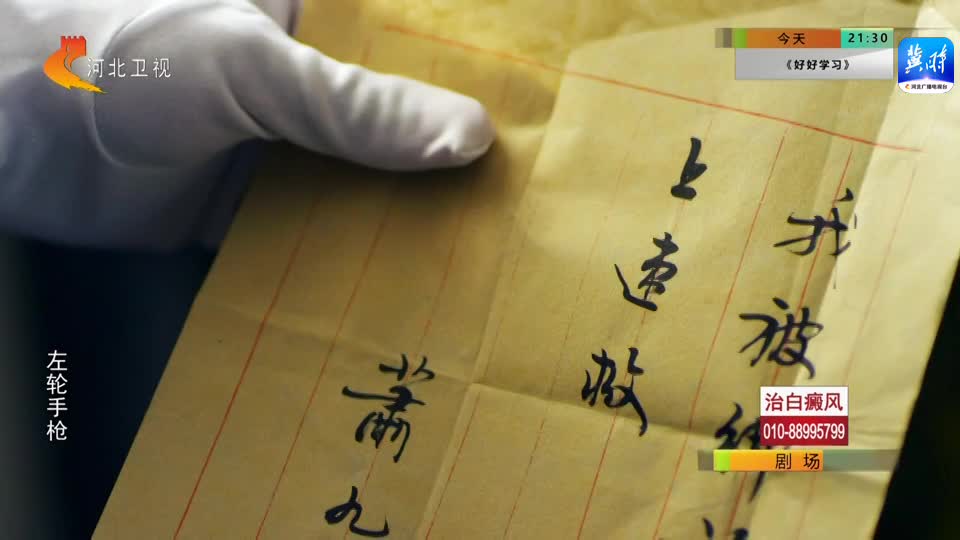 河北卫视
今天 21:30
《好好学习》
冀时
河北广播电视台
我被绑
上速救
萧九
左轮手枪
治白癜风
010-88995799
剧场